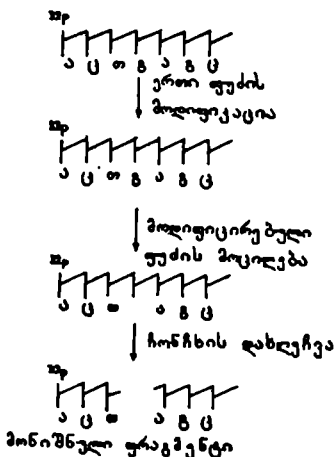 32p
ა ც თ გ ა გ ც
ერთი ფუძის
მოდიფიკაცია
32p
ა ც თ გ ა გ ც
მოდიფიცირებული
ფუძის მოცილება
32p
ა ც თ ა გ ც
ჩონჩხის დახლეჩვა
32p
ა ც თ ა გ ც
მონიშნული ფრაგმენტი